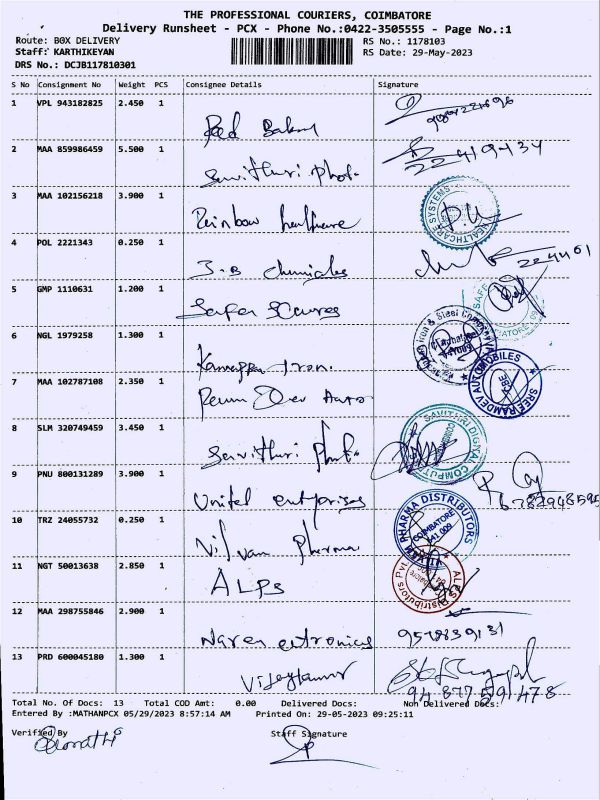 THE PROFESSIONAL COURIERS, COIMBATORE
Delivery Runsheet - PCX - Phone No.:0422-3505555 - Page No.:1
Route: BOX DELIVERY RS No.: 1178103
Staff: KARTHIKEYAN RS Date: 29-May-2023
DRS No.: DCJB117810301
S No Consignment No Weight PCS Consignee Details Signature
1 VPL 943182825 2.450 1
Red
2 MAA 859986459 5.500 1
Savithuri Phot. 2249434
3 MAA 102156218 3.900 1
Rainbow healthcare HEALTHCARE SYSTEMS
4 POL 2221343 0.250 1
3-B Chemicals 224401
5 GMP 1110631 1.200 1
6 NGL 1979258 1.300 1
Iron & Steel Company
7 MAA 102787108 2.350 1
Dev Auto SREE RAMDEV AUTOMOBILES
8 SLM 320749459 3.450 1
Savithuri Phot. SAVITHRI DIGITAL COMPUT
9 PNU 800131289 3.900 1
United enterprises
10 TRZ 24055732 0.250 1
Pharma PHARMA DISTRIBUTORS COIMBATORE 641 009
11 NGT 50013638 2.850 1
ALPS ALPS Distributors Pvt.
12 MAA 298755846 2.900 1
9578839131
13 PRD 600045180 1.300 1
Vijaykumar
94 877 591 478
Total No. Of Docs: 13 Total COD Amt: 0.00 Delivered Docs: Non Delivered Docs:
Entered By :MATHANPCX 05/29/2023 8:57:14 AM Printed On: 29-05-2023 09:25:11
Verified By Staff Signature